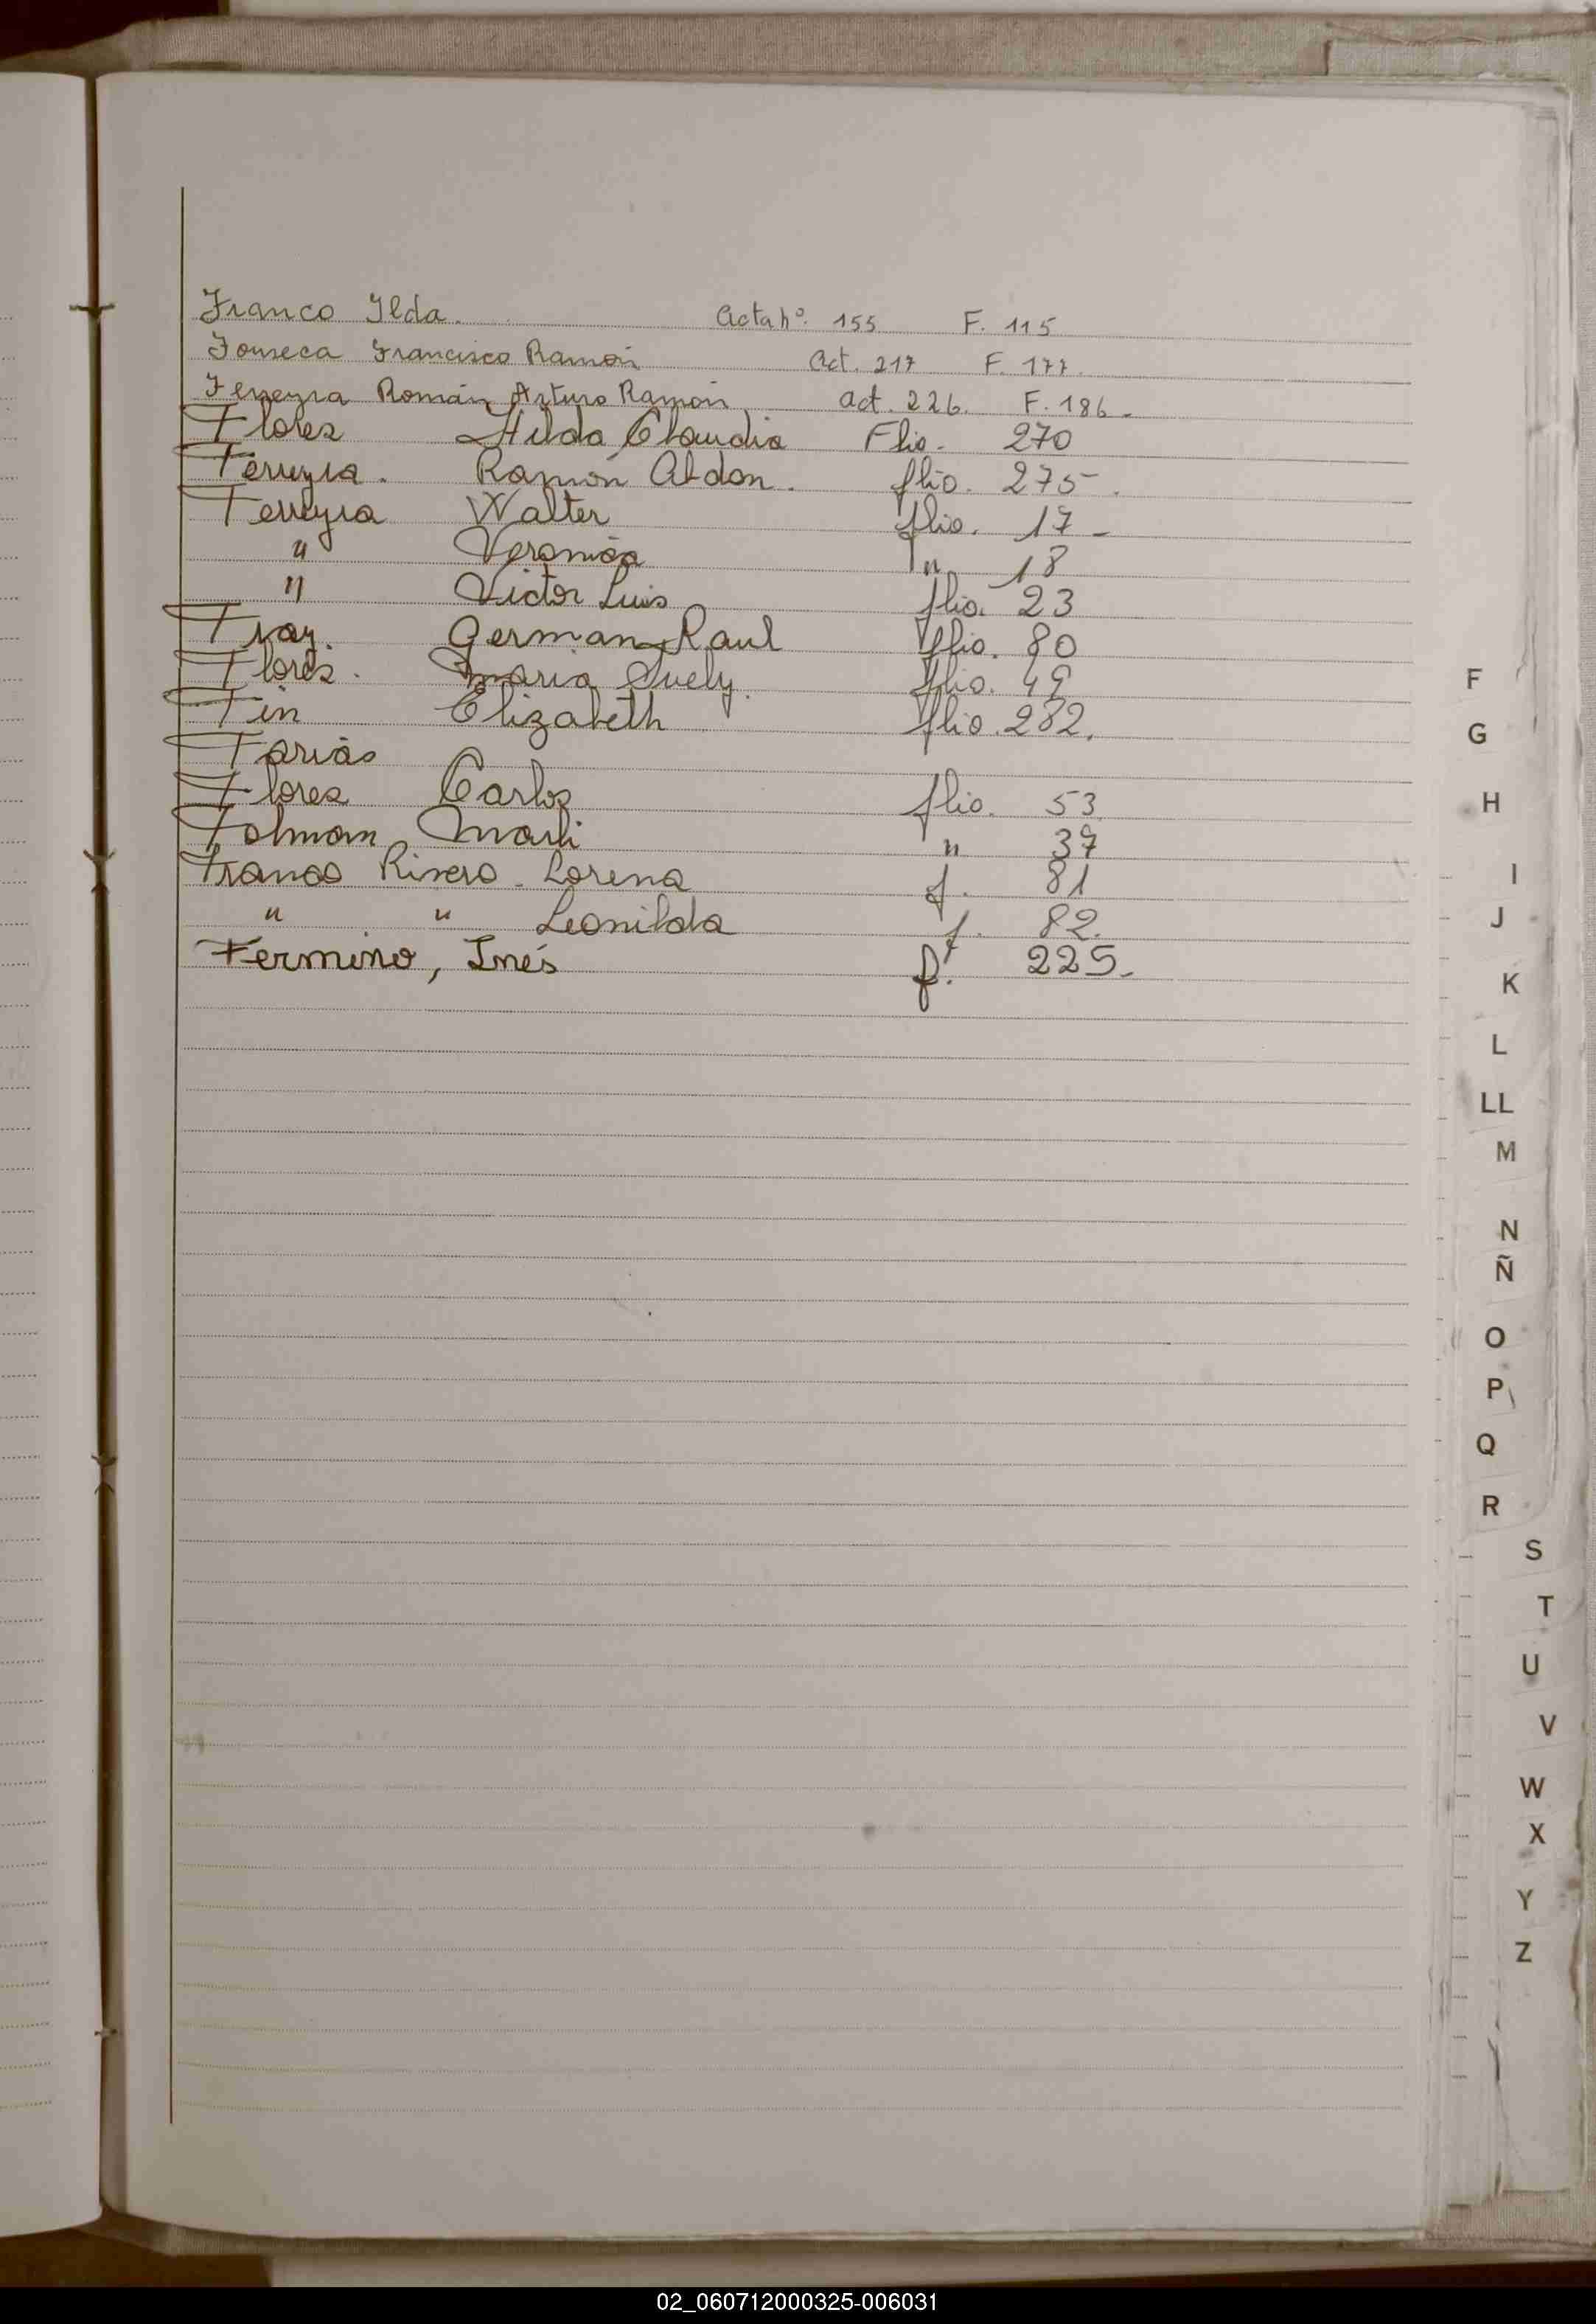 Franco Ilda. Acta nº. 155 F. 115
Fonseca Francisco Ramón Act. 217 F. 177.
Ferreyra Román Arturo Ramón act. 226. F. 186.
Flores Hilda Claudia Flio. 270
Ferreyra. Ramón Abdon. flio. 275.
Ferreyra Walter flio. 17
" Veronica " 18
" Victor Luis flio. 23
Fray. German Raul flio. 80
Flores. Maria Suely. flio. 49
Fin Elizabeth flio. 282.
Farias
Flores Carlos flio. 53
Folmam Marli " 37
Franco Rivero. Lorena f. 81
" " Leonilda f. 82.
Fermino, Inés fº. 225.
F
G
H
I
J
K
L
LL
M
N
Ñ
O
P
Q
R
S
T
U
V
W
X
Y
Z
02_060712000325-006031